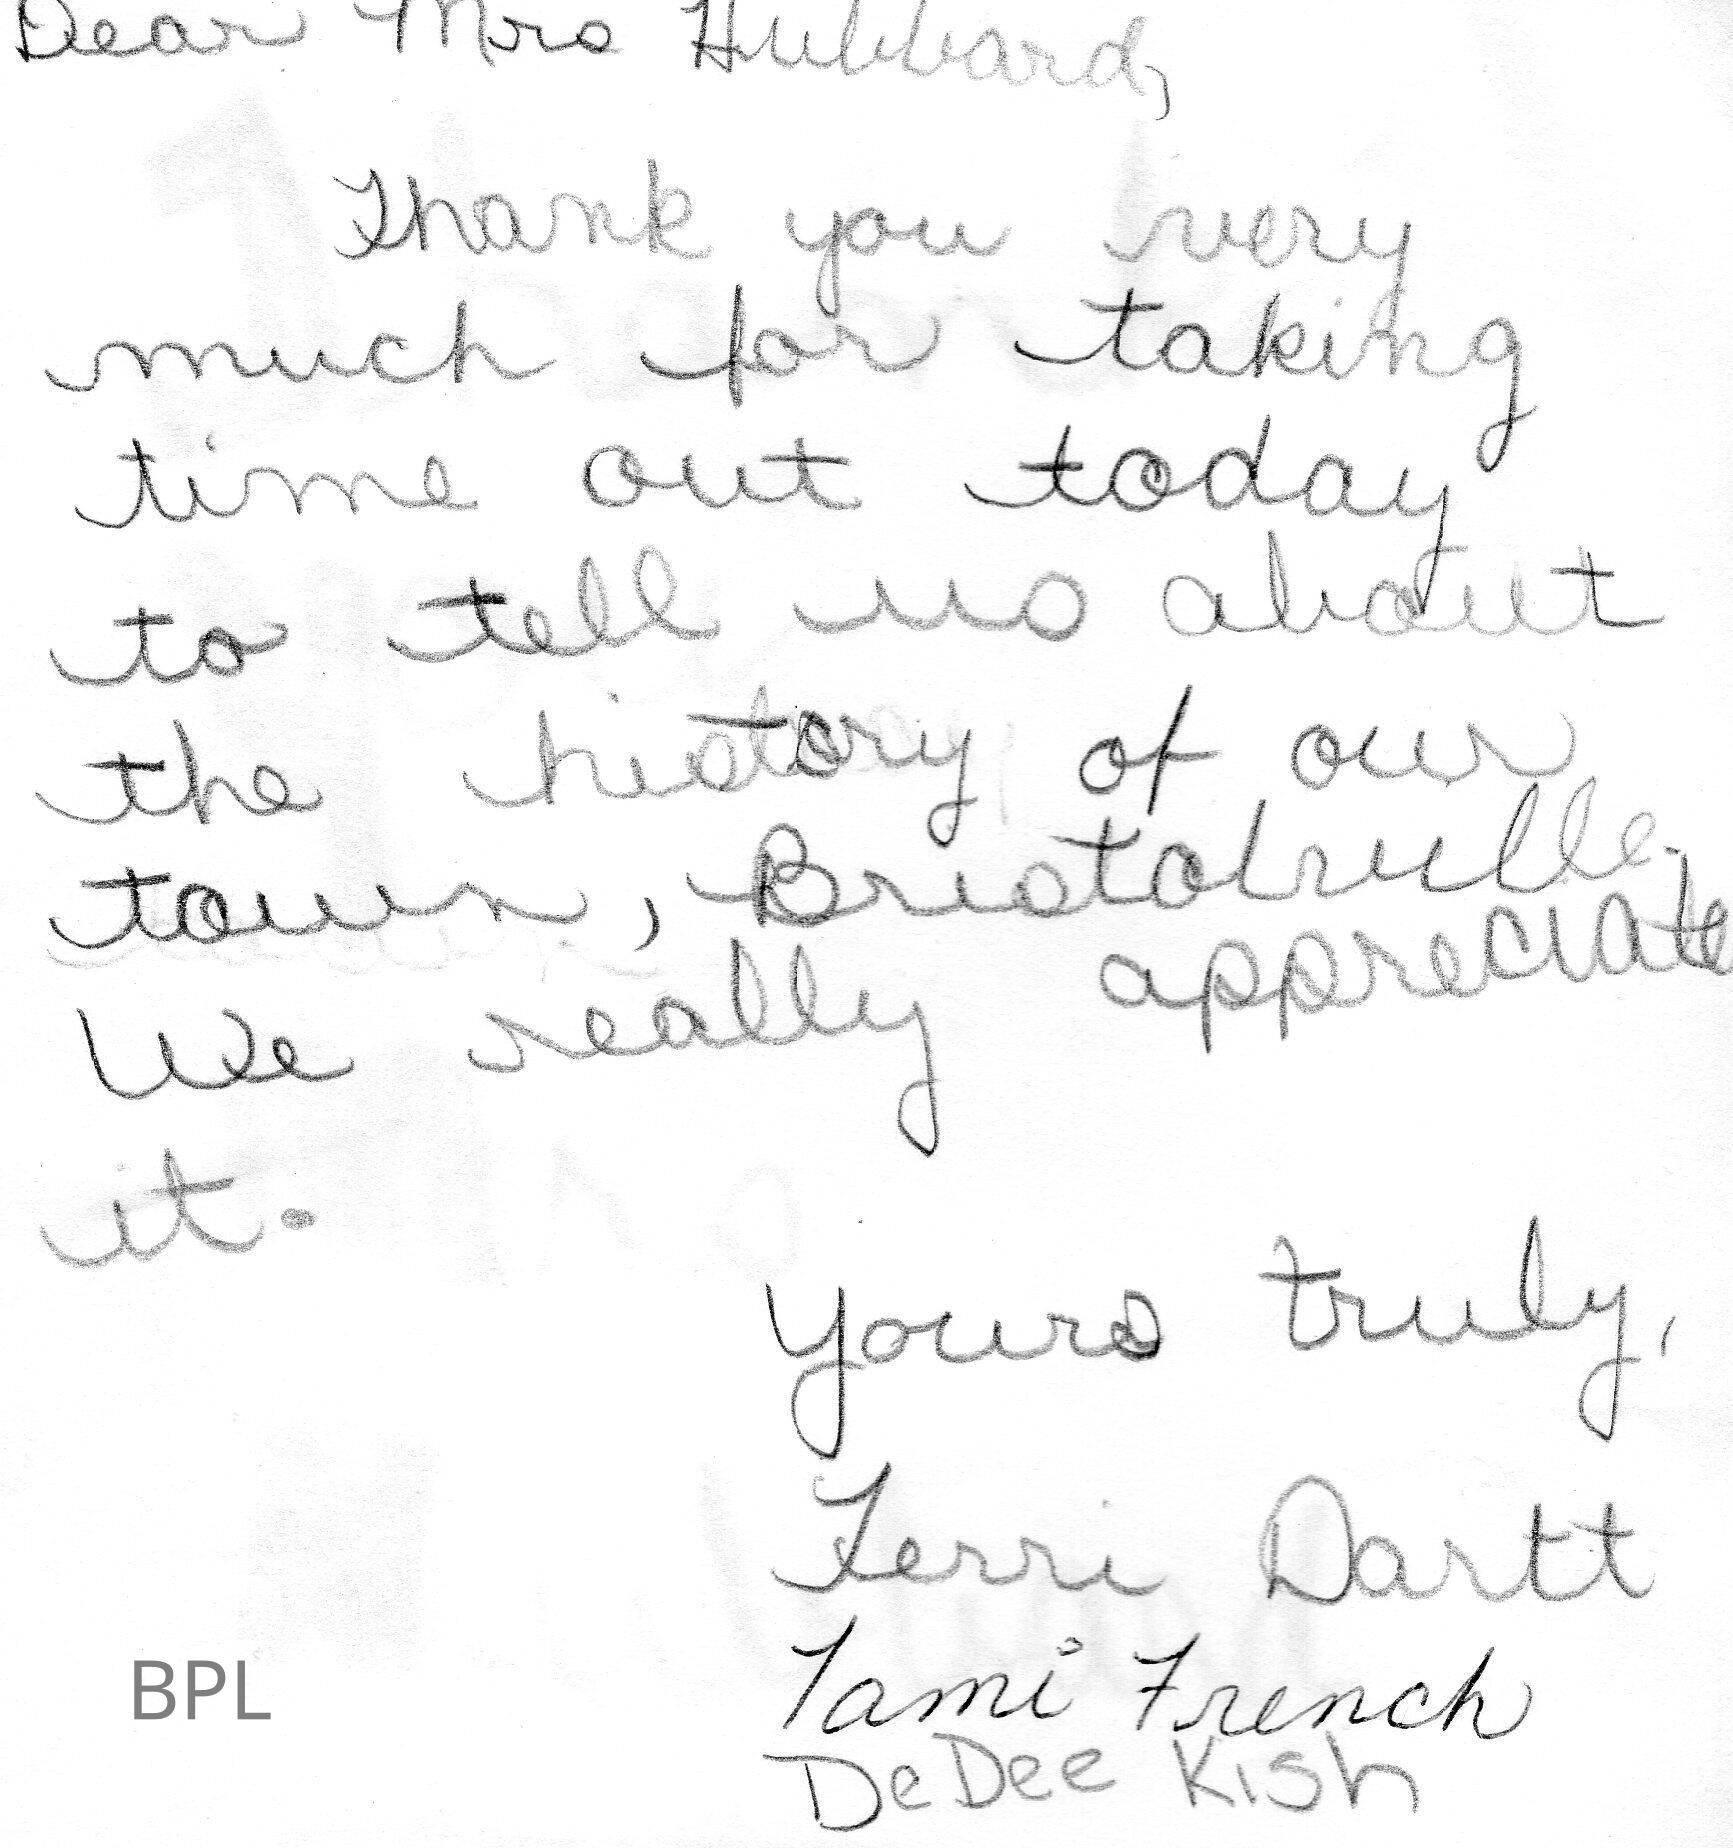 Dear Mrs Hubbard,
Thank you very
much for taking
time out today
to tell us about
the history of our
town, Bristolville.
We really appreciate
it.
Yours truly,
Terri Dartt
Tami French
DeDee Kish
BPL